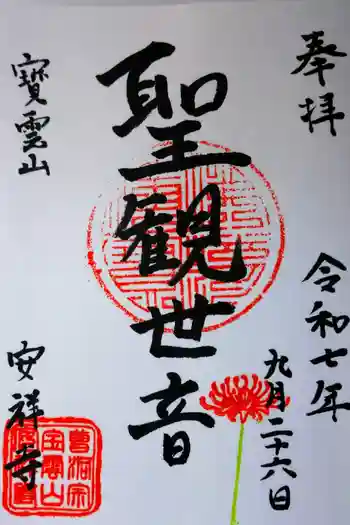 奉拝
令和七年
九月二十六日
聖観世音
寳雲山
安祥寺
曹洞宗
寳雲山